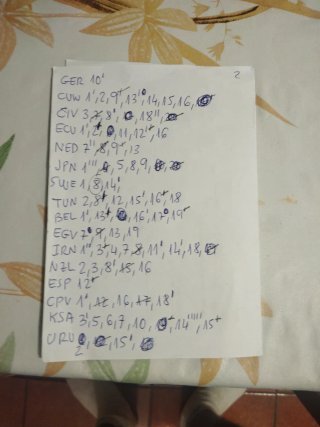 2
GER 10'
CUW 1', 2, 9+, 13', 14, 15, 16,
CIV 3, 7, 8', 18''
ECU 1', 2, 11, 12+, 16
NED 7'', 8, 9+, 13
JPN 1''', 5, 8, 9
SWE 1, 8, 14'
TUN 2, 8+, 12, 15', 16+, 18
BEL 1', 13+, 16', 17', 19+
EGY 7', 9, 13, 19
IRN 1'', 3+, 4, 7, 8, 11', 14', 18
NZL 2, 3, 8', 15, 16
ESP 12+
CPV 1', 12, 16, 17, 18'
KSA 3', 5, 6, 7, 10, 14''''', 15+
URU 15'
2